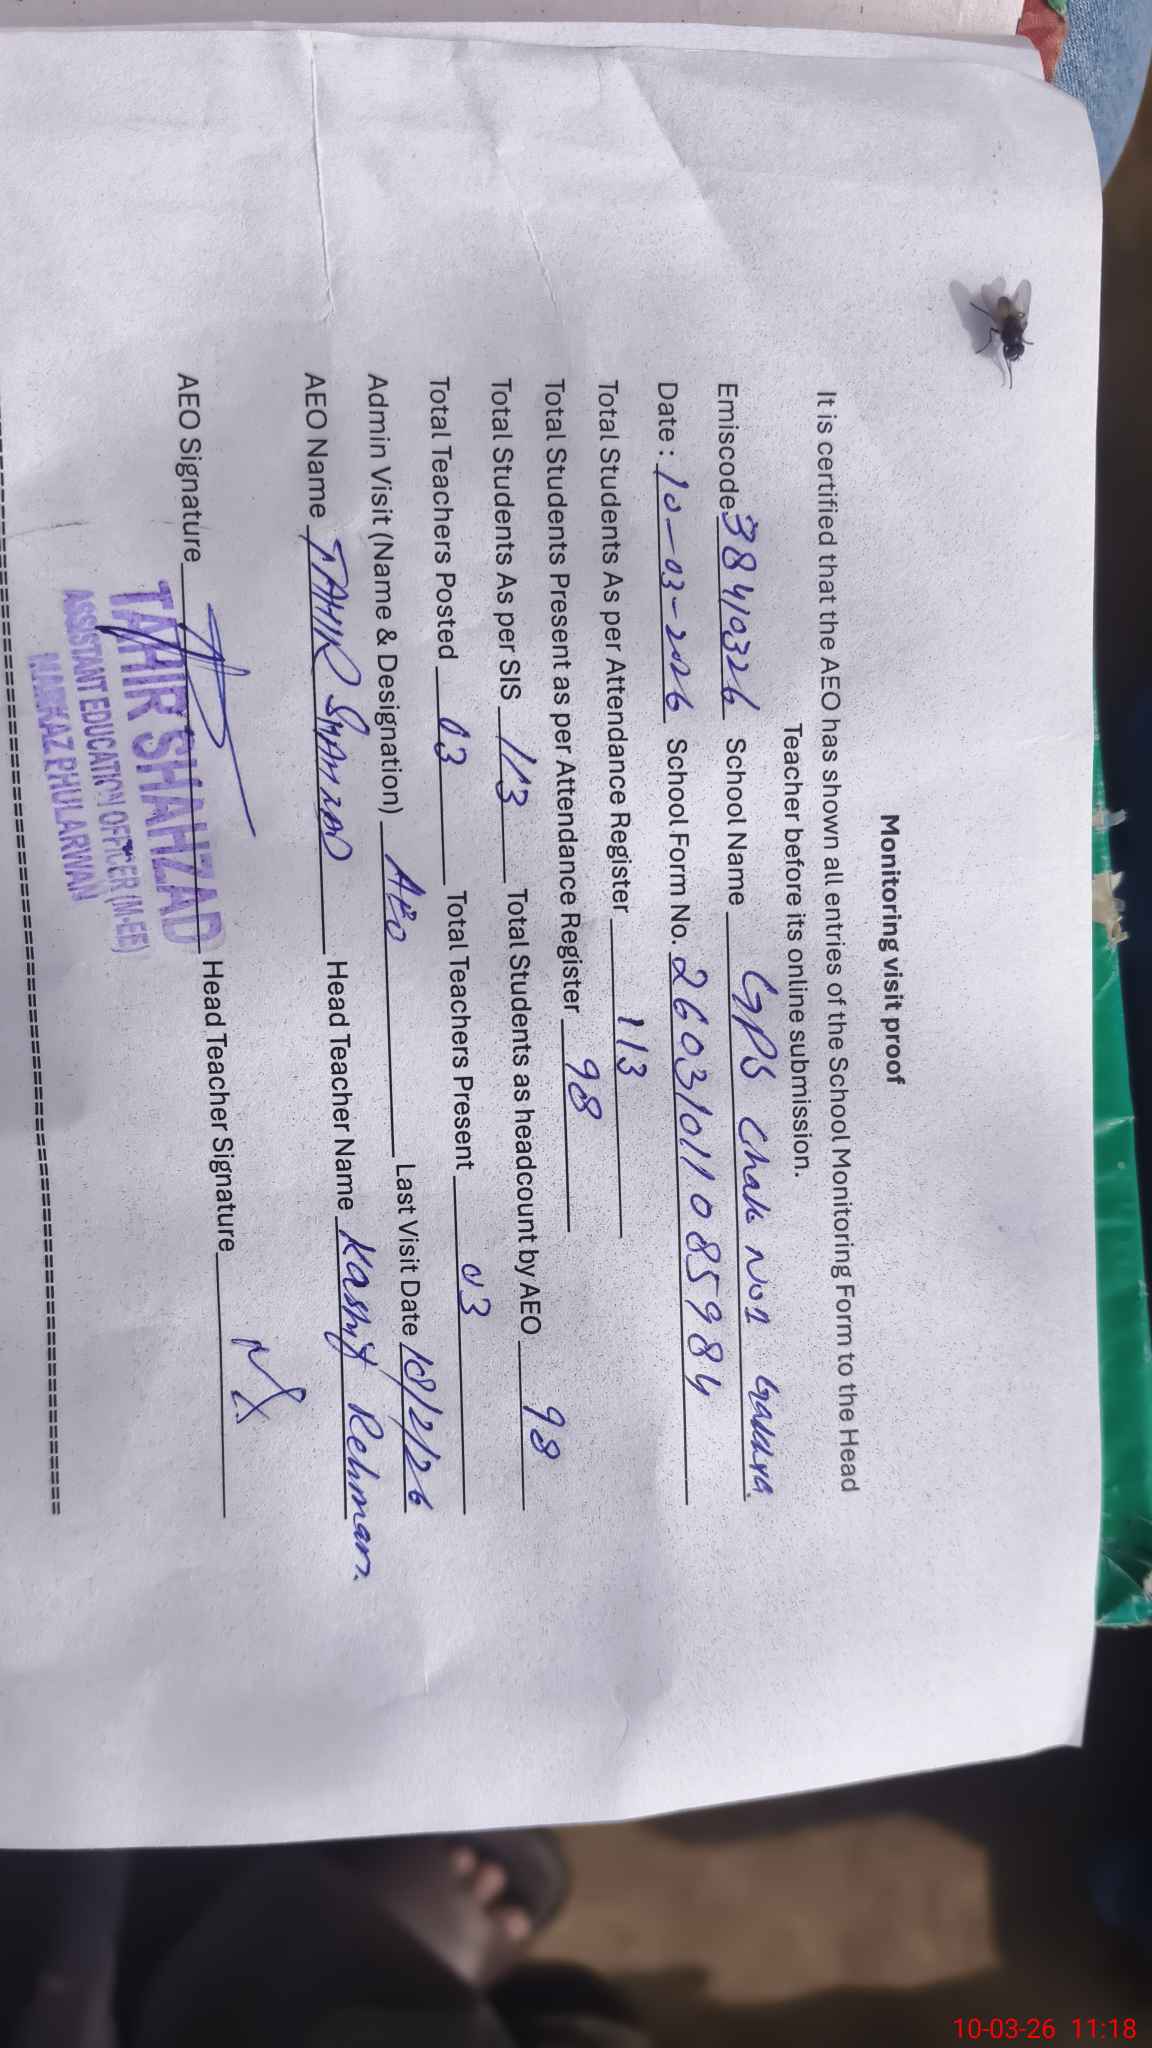 Monitoring visit proof
It is certified that the AEO has shown all entries of the School Monitoring Form to the Head
Teacher before its online submission.
Emiscode 38410326 School Name GPS Chak No 1
Date : 10-03-2026 School Form No. 26031011085984
Total Students As per Attendance Register 113
Total Students Present as per Attendance Register 98
Total Students As per SIS 113 Total Students as headcount by AEO 98
Total Teachers Posted 03 Total Teachers Present 03
Admin Visit (Name & Designation) AEO Last Visit Date 18/2/26
AEO Name TAHIR SHAHZAD Head Teacher Name Kashif Rehman.
AEO Signature Head Teacher Signature
TAHIR SHAHZAD
ASSISTANT EDUCATION OFFICER (M-EE)
MARKAZ PHULARWAN
10-03-26 11:18